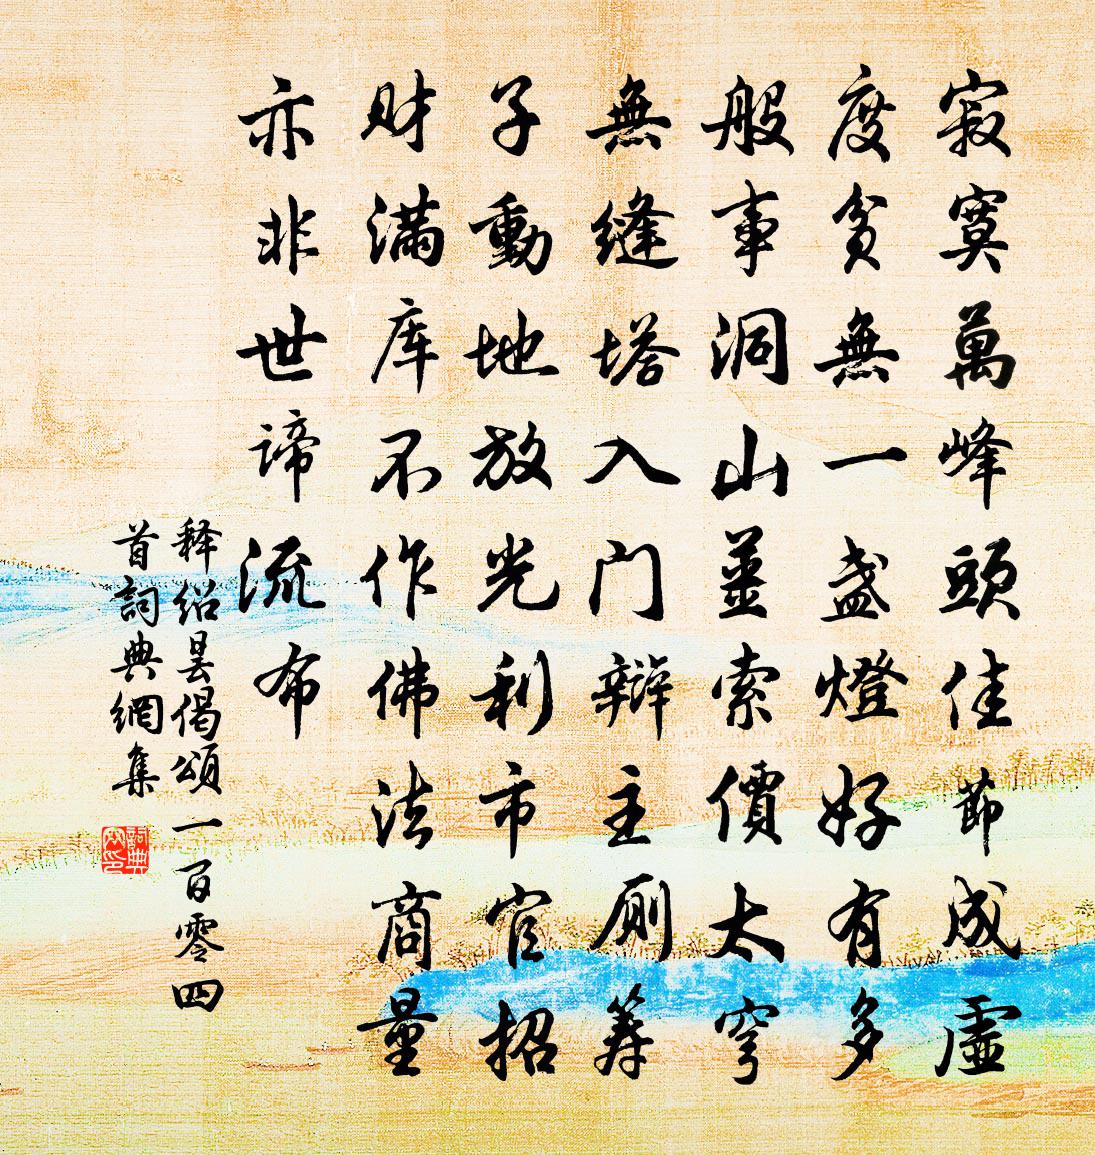 寂寞萬峰頭佳節成虛
度貧無一盏燈好有多
般事洞山薑索價太穹
無縫塔入门辯主厠筹
子動地放光利市官招
财满库不作佛法商量
亦非世谛流布
释绍昙偈頌一百零四
首詞典網集